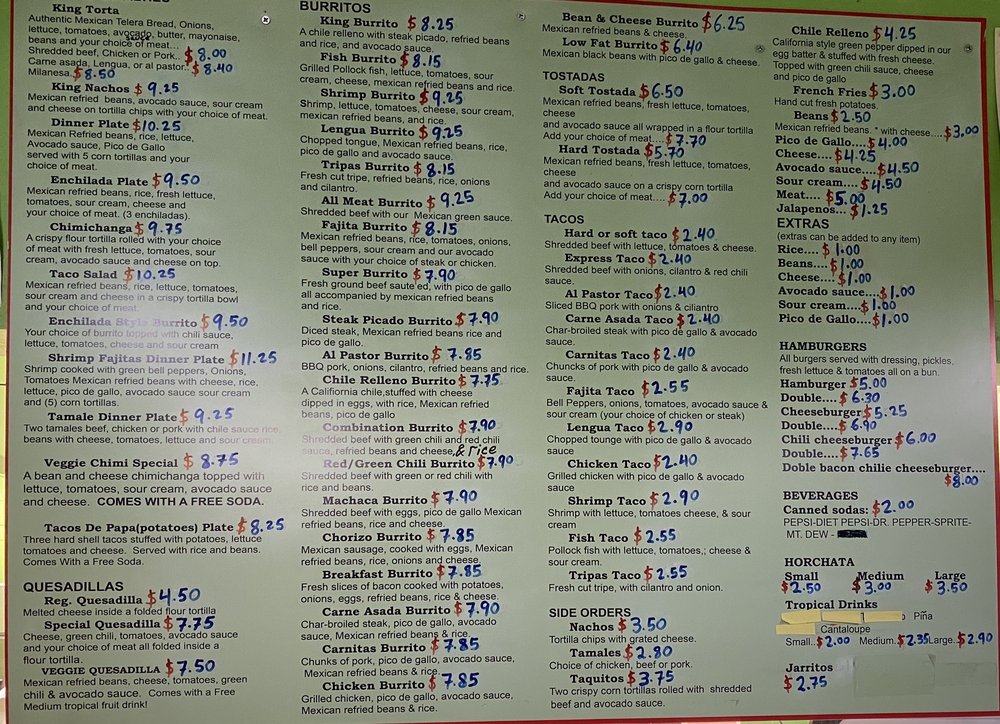 King Torta
Authentic Mexican Telera Bread, Onions,
lettuce, tomatoes, avocado, butter, mayonaise,
beans and your choice of meat...
Shredded beef, Chicken or Pork.. $8.00
Carne asada, Lengua, or al pastor.. $8.40
Milanesa. $8.50
King Nachos $9.25
Mexican refried beans, avocado sauce, sour cream
and cheese on tortilla chips with your choice of meat.
Dinner Plate $10.25
Mexican Refried beans, rice, lettuce,
Avocado sauce, Pico de Gallo
served with 5 corn tortillas and your
choice of meat.
Enchilada Plate $9.50
Mexican refried beans, rice, fresh lettuce,
tomatoes, sour cream, cheese and
your choice of meat. (3 enchiladas).
Chimichanga $9.75
A crispy flour tortilla rolled with your choice
of meat with fresh lettuce, tomatoes, sour
cream, avocado sauce and cheese on top.
Taco Salad $10.25
Mexican refried beans, rice, lettuce, tomatoes,
sour cream and cheese in a crispy tortilla bowl
and your choice of meat.
Enchilada Style Burrito $9.50
Your choice of burrito topped with chili sauce,
lettuce, tomatoes, cheese and sour cream
Shrimp Fajitas Dinner Plate $11.25
Shrimp cooked with green bell peppers, Onions,
Tomatoes Mexican refried beans with cheese, rice,
lettuce, pico de gallo, avocado sauce sour cream
and (5) corn tortillas.
Tamale Dinner Plate $9.25
Two tamales beef, chicken or pork with chile sauce rice,
beans with cheese, tomatoes, lettuce and sour cream.
Veggie Chimi Special $8.75
A bean and cheese chimichanga topped with
lettuce, tomatoes, sour cream, avocado sauce
and cheese. COMES WITH A FREE SODA.
Tacos De Papa(potatoes) Plate $8.25
Three hard shell tacos stuffed with potatoes, lettuce
tomatoes and cheese. Served with rice and beans.
Comes With a Free Soda.
QUESADILLAS
Reg. Quesadilla $4.50
Melted cheese inside a folded flour tortilla
Special Quesadilla $7.75
Cheese, green chili, tomatoes, avocado sauce
and your choice of meat all folded inside a
flour tortilla.
VEGGIE QUESADILLA $7.50
Mexican refried beans, cheese, tomatoes, green
chili & avocado sauce. Comes with a Free
Medium tropical fruit drink!
BURRITOS
King Burrito $8.25
A chile relleno with steak picado, refried beans
and rice, and avocado sauce.
Fish Burrito $8.15
Grilled Pollock fish, lettuce, tomatoes, sour
cream, cheese, mexican refried beans and rice.
Shrimp Burrito $9.25
Shrimp, lettuce, tomatoes, cheese, sour cream,
mexican refried beans, and rice.
Lengua Burrito $9.25
Chopped tongue, Mexican refried beans, rice,
pico de gallo and avocado sauce.
Tripas Burrito $8.15
Fresh cut tripe, refried beans, rice, onions
and cilantro.
All Meat Burrito $9.25
Shredded beef with our Mexican green sauce.
Fajita Burrito $8.15
Mexican refried beans, rice, tomatoes, onions,
bell peppers, sour cream and our avocado
sauce with your choice of steak or chicken.
Super Burrito $7.90
Fresh ground beef saute'ed, with pico de gallo
all accompanied by mexican refried beans
and rice.
Steak Picado Burrito $7.90
Diced steak, Mexican refried beans rice and
pico de gallo.
Al Pastor Burrito $7.85
BBQ pork, onions, cilantro, refried beans and rice.
Chile Relleno Burrito $7.75
A California chile,stuffed with cheese
dipped in eggs, with rice, Mexican refried
beans, pico de gallo
Combination Burrito $7.90
Shredded beef with green chili and red chili
sauce, refried beans and cheese, & rice
Red/Green Chili Burrito $7.90
Shredded beef with green or red chili with
rice and beans.
Machaca Burrito $7.90
Shredded beef with eggs, pico de gallo Mexican
refried beans, rice and cheese.
Chorizo Burrito $7.85
Mexican sausage, cooked with eggs, Mexican
refried beans, rice, onions and cheese.
Breakfast Burrito $7.85
Fresh slices of bacon cooked with potatoes,
onions, eggs, refried beans, rice & cheese.
Carne Asada Burrito $7.90
Char-broiled steak, pico de gallo, avocado
sauce, Mexican refried beans & rice.
Carnitas Burrito $7.85
Chunks of pork, pico de gallo, avocado sauce,
Mexican refried beans & rice.
Chicken Burrito $7.85
Grilled chicken, pico de gallo, avocado sauce,
Mexican refried beans & rice.
Bean & Cheese Burrito $6.25
Mexican refried beans & cheese.
Low Fat Burrito $6.40
Mexican black beans with pico de gallo & cheese.
TOSTADAS
Soft Tostada $6.50
Mexican refried beans, fresh lettuce, tomatoes,
cheese
and avocado sauce all wrapped in a flour tortilla
Add your choice of meat.... $7.70
Hard Tostada $5.70
Mexican refried beans, fresh lettuce, tomatoes,
cheese
and avocado sauce on a crispy corn tortilla
Add your choice of meat.... $7.00
TACOS
Hard or soft taco $2.40
Shredded beef with lettuce, tomatoes & cheese.
Express Taco $2.40
Shredded beef with onions, cilantro & red chili
sauce.
Al Pastor Taco $2.40
Sliced BBQ pork with onions & ciliantro
Carne Asada Taco $2.40
Char-broiled steak with pico de gallo & avocado
sauce.
Carnitas Taco $2.40
Chuncks of pork with pico de gallo & avocado
sauce.
Fajita Taco $2.55
Bell Peppers, onions, tomatoes, avocado sauce &
sour cream (your choice of chicken or steak)
Lengua Taco $2.90
Chopped tounge with pico de gallo & avocado
sauce
Chicken Taco $2.40
Grilled chicken with pico de gallo & avocado
sauce
Shrimp Taco $2.90
Shrimp with lettuce, tomatoes cheese, & sour
cream
Fish Taco $2.55
Pollock fish with lettuce, tomatoes,; cheese &
sour cream.
Tripas Taco $2.55
Fresh cut tripe, with cilantro and onion.
SIDE ORDERS
Nachos $3.50
Tortilla chips with grated cheese.
Tamales $2.80
Choice of chicken, beef or pork.
Taquitos $3.75
Two crispy corn tortillas rolled with shredded
beef and avocado sauce.
Chile Relleno $4.25
California style green pepper dipped in our
egg batter & stuffed with fresh cheese.
Topped with green chili sauce, cheese
and pico de gallo
French Fries $3.00
Hand cut fresh potatoes.
Beans $2.50
Mexican refried beans. * with cheese.... $3.00
Pico de Gallo.... $4.00
Cheese.... $4.25
Avocado sauce.... $4.50
Sour cream.... $4.50
Meat.... $5.00
Jalapenos... $1.25
EXTRAS
(extras can be added to any item)
Rice.... $1.00
Beans.... $1.00
Cheese.... $1.00
Avocado sauce.... $1.00
Sour cream.... $1.00
Pico de Gallo.... $1.00
HAMBURGERS
All burgers served with dressing, pickles,
fresh lettuce & tomatoes all on a bun.
Hamburger $5.00
Double.... $6.30
Cheeseburger $5.25
Double.... $6.90
Chili cheeseburger $6.00
Double.... $7.65
Doble bacon chilie cheeseburger....
$8.00
BEVERAGES
Canned sodas: $2.00
PEPSI-DIET PEPSI-DR. PEPPER-SPRITE-
MT. DEW -
HORCHATA
Small Medium Large
$2.50 $3.00 $3.50
Tropical Drinks
Piña
Cantaloupe
Small.. $2.00 Medium. $2.35 Large.. $2.90
Jarritos
$2.75